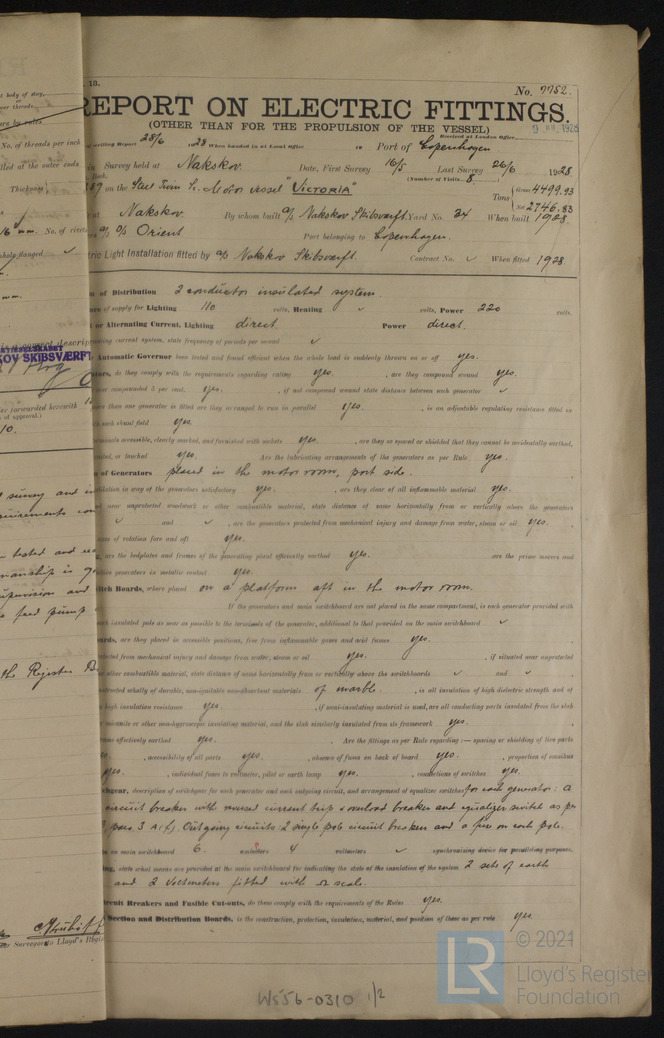 13.
No. 7752.
REPORT ON ELECTRIC FITTINGS.
(OTHER THAN FOR THE PROPULSION OF THE VESSEL)
Received at London Office
1928
writing Report 28/6 1928 When handed in at Local Office to Port of Copenhagen
in Survey held at Nakskov. Date, First Survey 16/5 Last Survey 26/6 1928
Book. (Number of Visits 8
on the Steel Twin Sc. Motor vessel "VICTORIA" Tons { Gross 4499.93
Net 2746.83
at Nakskov. By whom built A/S Nakskov Skibsværft. Yard No. 34 When built 1928.
A/S Orient Port belonging to Copenhagen.
tric Light Installation fitted by A/S Nakskov Skibsværft. Contract No. ✓ When fitted 1928
m of Distribution 2 conductor insulated system.
ure of supply for Lighting 110 volts, Heating ✓ volts, Power 220 volts.
t or Alternating Current, Lighting direct Power direct.
rnating current system, state frequency of periods per second ✓
Automatic Governor been tested and found efficient when the whole load is suddenly thrown on or off yes.
ators, do they comply with the requirements regarding rating yes. , are they compound wound yes.
over compounded 5 per cent. yes. , if not compound wound state distance between each generator ✓
more than one generator is fitted are they arranged to run in parallel yes. , is an adjustable regulating resistance fitted in
n each shunt field yes.
rminals accessible, clearly marked, and furnished with sockets yes. , are they so spaced or shielded that they cannot be accidentally earthed,
uited, or touched yes. Are the lubricating arrangements of the generators as per Rule yes.
n of Generators placed in the motor room, port side.
ntilation in way of the generators satisfactory yes. , are they clear of all inflammable material yes.
ed near unprotected woodwork or other combustible material, state distance of same horizontally from or vertically above the generators
✓ and ✓ , are the generators protected from mechanical injury and damage from water, steam or oil yes.
axes of rotation fore and aft yes.
, are the bedplates and frames of the generating plant efficiently earthed yes. are the prime movers and
their generators in metallic contact yes.
itch Boards, where placed on a platform aft in the motor room.
If the generators and main switchboard are not placed in the same compartment, is each generator provided with
ach insulated pole as near as possible to the terminals of the generator, additional to that provided on the main switchboard ✓
oards, are they placed in accessible positions, free from inflammable gases and acid fumes yes.
otected from mechanical injury and damage from water, steam or oil yes. , if situated near unprotected
or other combustible material, state distance of same horizontally from or vertically above the switchboards ✓ and ✓ ,
nstructed wholly of durable, non-ignitable non-absorbent materials of marble. , is all insulation of high dielectric strength and of
high insulation resistance yes. , if semi-insulating material is used, are all conducting parts insulated from the slab
micanite or other non-hygroscopic insulating material, and the slab similarly insulated from its framework yes.
rame effectively earthed yes. Are the fittings as per Rule regarding :— spacing or shielding of live parts
, accessibility of all parts yes. , absence of fuses on back of board yes. , proportion of omnibus
yes. , individual fuses to voltmeter, pilot or earth lamp yes. , connections of switches yes.
chgear, description of switchgear for each generator and each outgoing circuit, and arrangement of equalizer switches for each generator : a
circuit breaker with reversed current trip & overload breaker and equalizer switch as per
para 3 A. f. Outgoing circuits 2 single pole circuit breakers and a fuse on each pole.
ts on main switchboard 6 ammeters 4 voltmeters ✓ synchronising device for paralleling purposes.
ing, state what means are provided at the main switchboard for indicating the state of the insulation of the system 2 sets of earth
and 2 Voltmeters fitted with Ω scale.
ircuit Breakers and Fusible Cut-outs, do these comply with the requirements of the Rules yes.
Section and Distribution Boards, is the construction, protection, insulation, material, and position of these as per rule yes.
W556-0310 1/2
LR © 2021
Lloyd's Register
Foundation